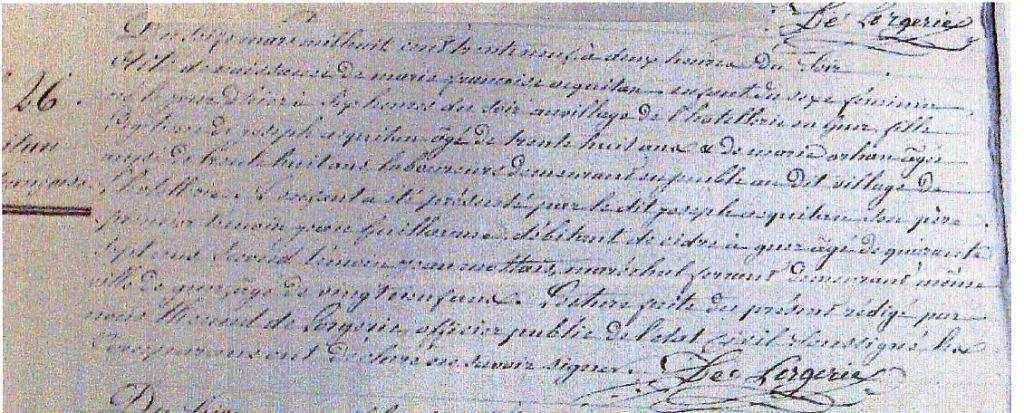 De Lorgerie
Du seize mars mil huit cent trente neuf à deux heures du soir
26.
Acte de naissance de marie françoise aquitau enfant du sexe féminin
née le jour d'hier à sept heures du soir au village de l'hotellerie en guer fille
légitime de joseph aquitau âgé de trente huit ans & de marie orhan âgée
aussi de trente huit ans laboureurs demeurant ensemble au dit village de
l'hotellerie. L'enfant a été présenté par le dit joseph aquitau son père
premier témoin jean guillaume débitant de cidre à guer âgé de quarante
sept ans second témoin jean mottais, maréchal ferrant demeurant même
ville de guer âgé de vingt neuf ans. Lecture faite du présent rédigé par
nous de Lorgerie officier public de l'état civil soussigné les
comparans ont déclaré ne savoir signer. De Lorgerie
Du